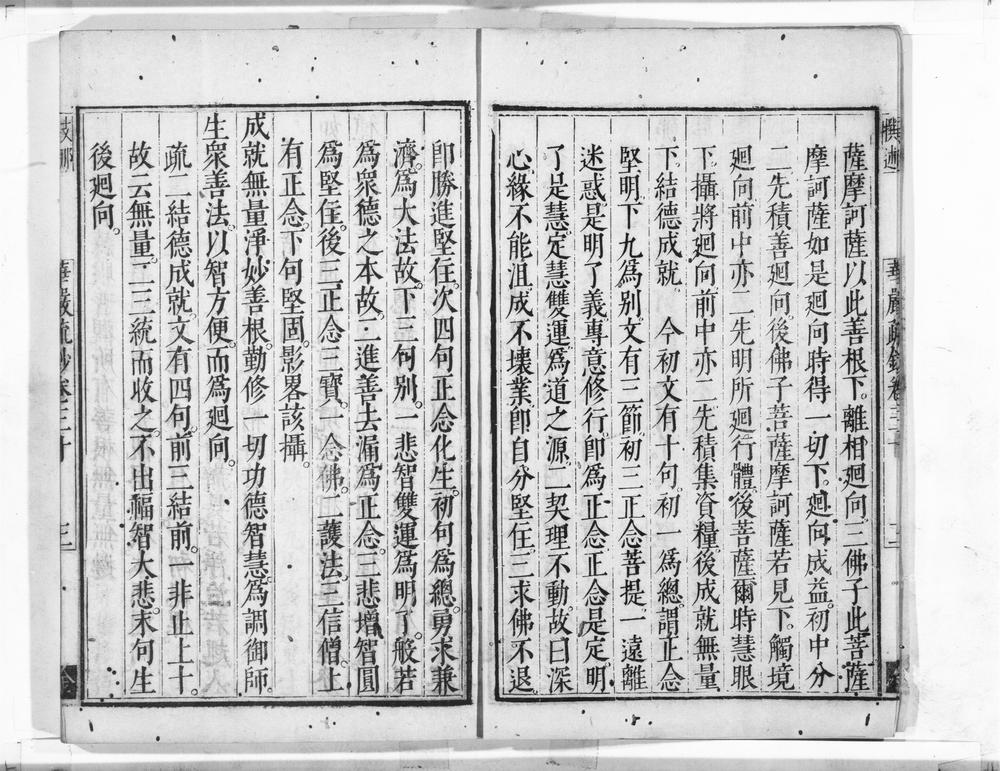 薩摩訶薩以此善根下。離相廻向。二佛子此菩薩
摩訶薩如是廻向時得一切下。廻向成益。初中分
二。先積善廻向。後佛子菩薩摩訶薩若見下。觸境
廻向。前中亦二。先明所廻行體。後菩薩爾時慧眼
下。攝將廻向。前中亦二。先積集資糧。後成就無量
下。結德成就。　今初。文有十句。初一爲總。謂正念
堅明。下九爲別。文有三節。初三正念菩提。一遠離
迷惑是明了義。專意修行。即爲正念。正念是定。明
了是慧。定慧雙運。爲道之源。二契理不動。故曰深
心。緣不能沮。成不壞業。即自分堅住。三求佛不退。
即勝進堅住。次四句正念化生。初句爲總。勇求兼
濟。爲大法故。下三句別。一悲智雙運爲明了。般若
爲衆德之本故。二進善去漏爲正念。三悲增智圓
爲堅住。後三正念三寶。一念佛。二護法。三信僧。上
有正念。下句堅固。影畧該攝。
成就無量淨妙善根。勤修一切功德智慧。爲調御師。
生衆善法。以智方便。而爲廻向。
疏二結德成就。文有四句。前三結前。一非止上十。
故云無量。二三統而收之。不出福智大悲。末句生
後廻向。
華嚴疏鈔卷三十
華嚴疏鈔卷三十